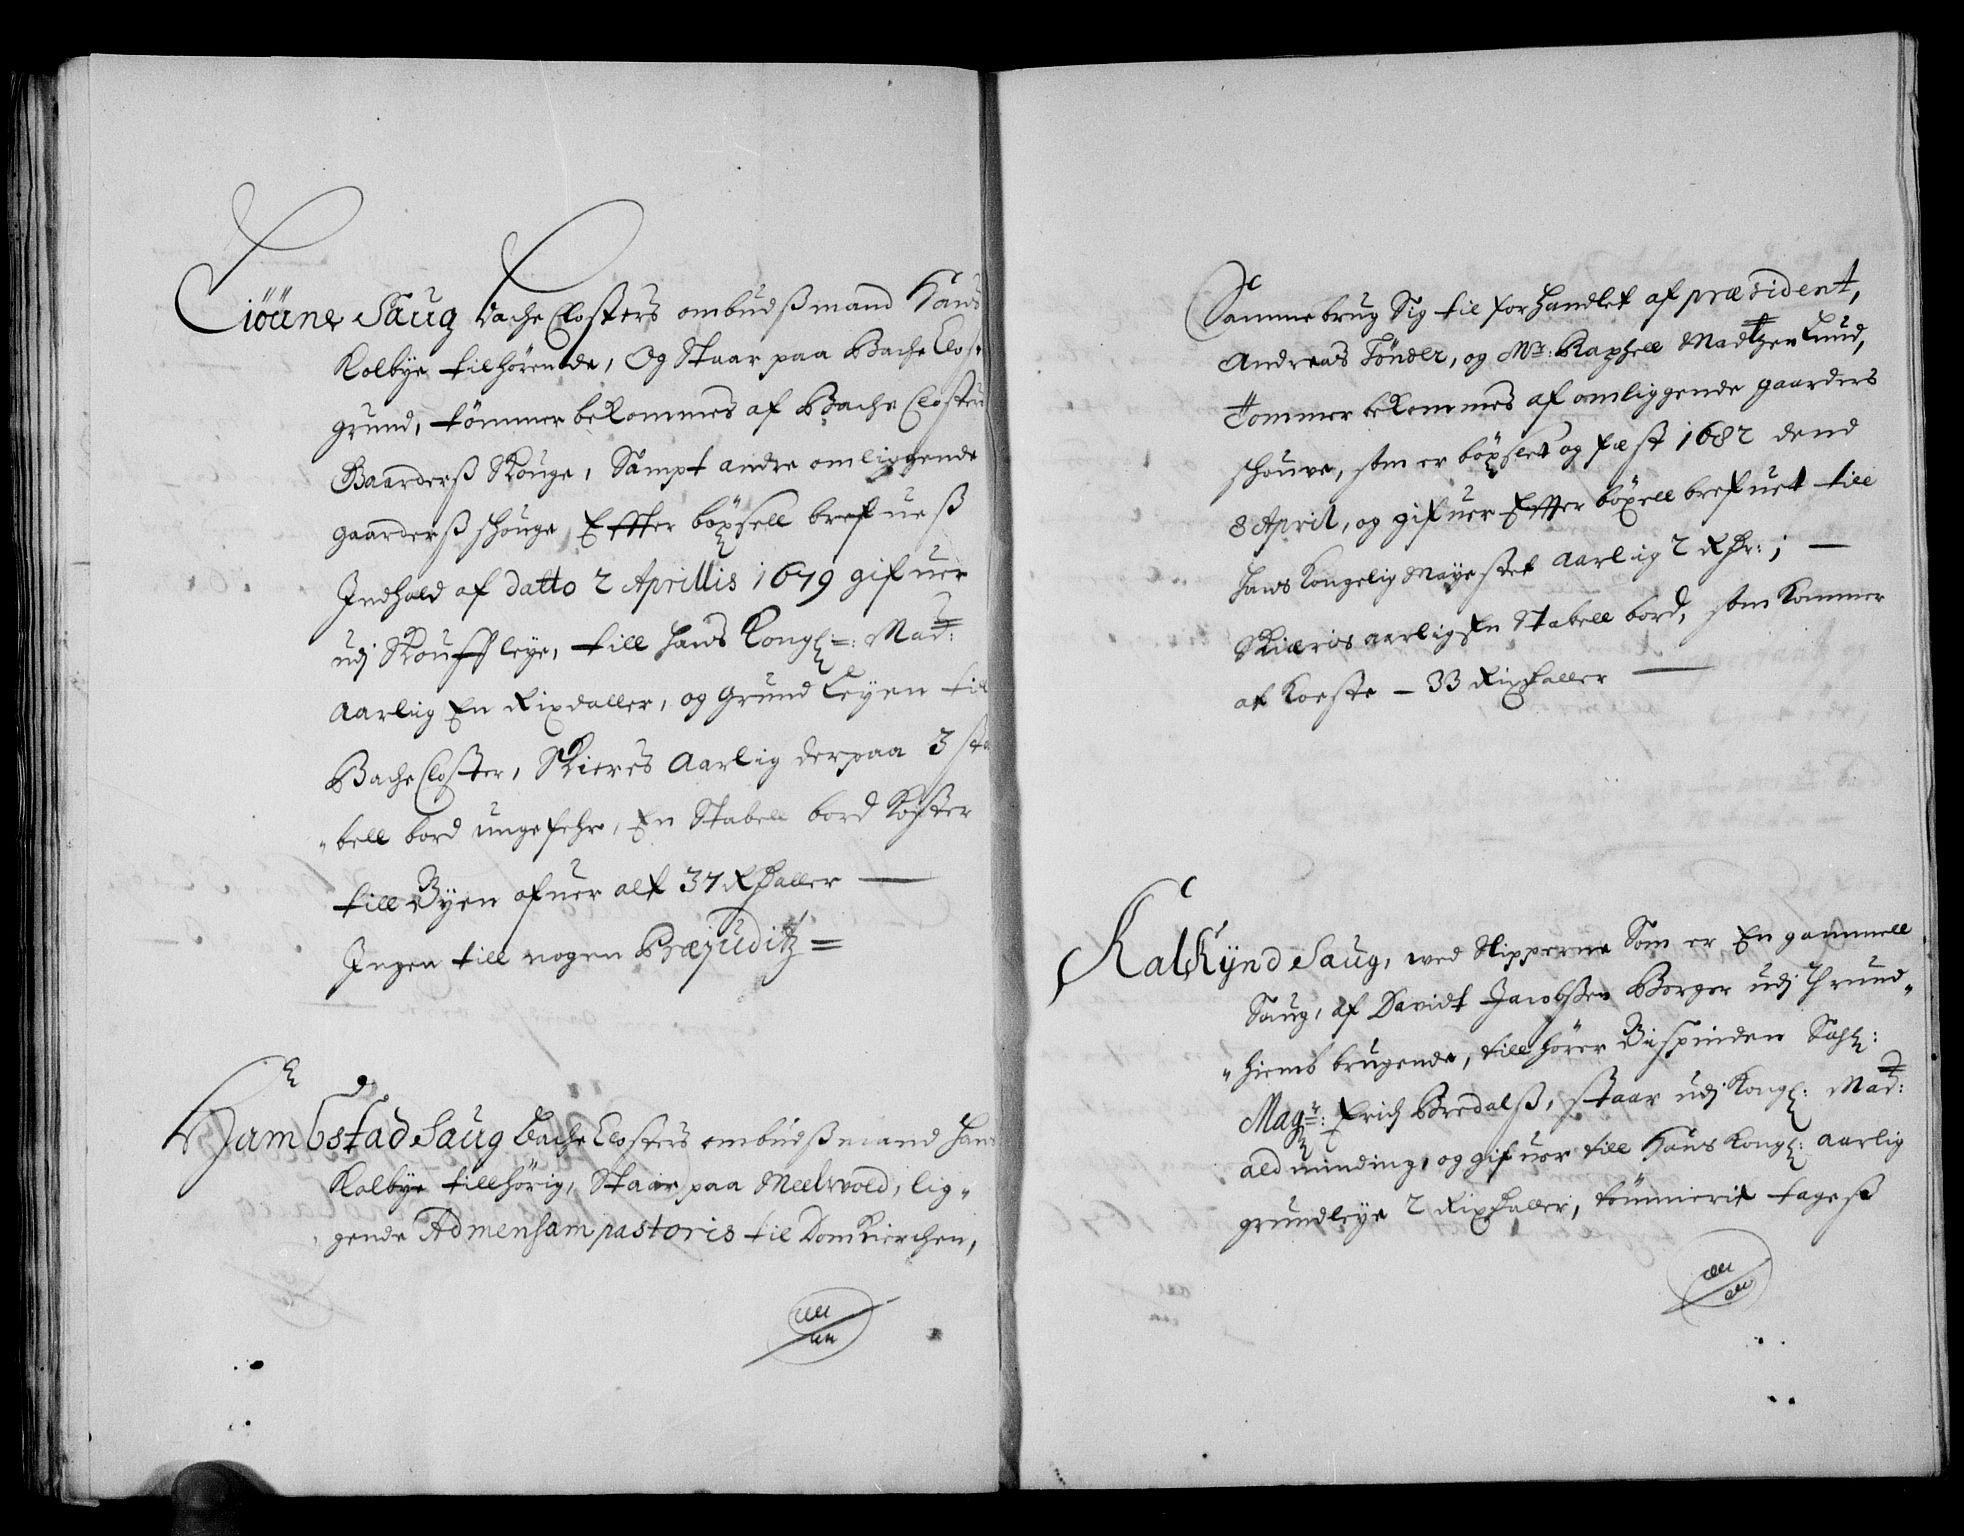 Tiöüne Saug Bache Closters ombudßmand Hans
Kolbÿe tilhörende, Og Staar paa Bache Clos-
grund, tömmer bekommes af Bache Closters
Gaarderß Skouge, Sampt andre omliggende
gaarderß shouge, Effter böxsell brefueß
Indhold af datto 2 Aprillis 1679 gifuer
udj Skouffleye, till hans Kongl: Maÿt:
Aarlig En Rixdaller, og Grund Leÿen till
Bache Closter, Skieres Aarlig derpaa 3 sta
"bell bord ungefehr, En Stabell bord koster
till Bÿen ofuer alt 37 Rdaller —
Ingen till nogen Præjuditz =
Hambstad Saug Bache Closters ombudßmand Hans
Kolbÿe tillhörig, Staar paa Meelvold, lig-
gende Ad mensam pastoris til Domkierchen,
Samme brug Sig til forhandlet af præsident,
Andreas Tönder, og Mr: Raphell Madtzen Lund,
Tommer bekommes af omliggende gaarders
shouve, som er böxslet og fæst 1682 dend
8 April, og gifuer Effter böxell brefuet till
Hans Kongelig Maÿestet Aarlig 2 Rdr: ; —
Skiæris aarlig En Stabell bord, som kommer
at koeste — 33 Rixdaller —
Kalkÿnd Saug, wed Slipperne Som er En gammell
Saug, af Davidt Jacobßen Borger udj Thrund-
"hiemb brugende, tillhörer Bispinden Sahl:
Magr: Erich Bredalß, staar udj Kongl: Maÿt:
aldminding, og gifuer till Hans Kongl: aarlig
grundleÿe 2 Rixdaller, tömmerit tageß